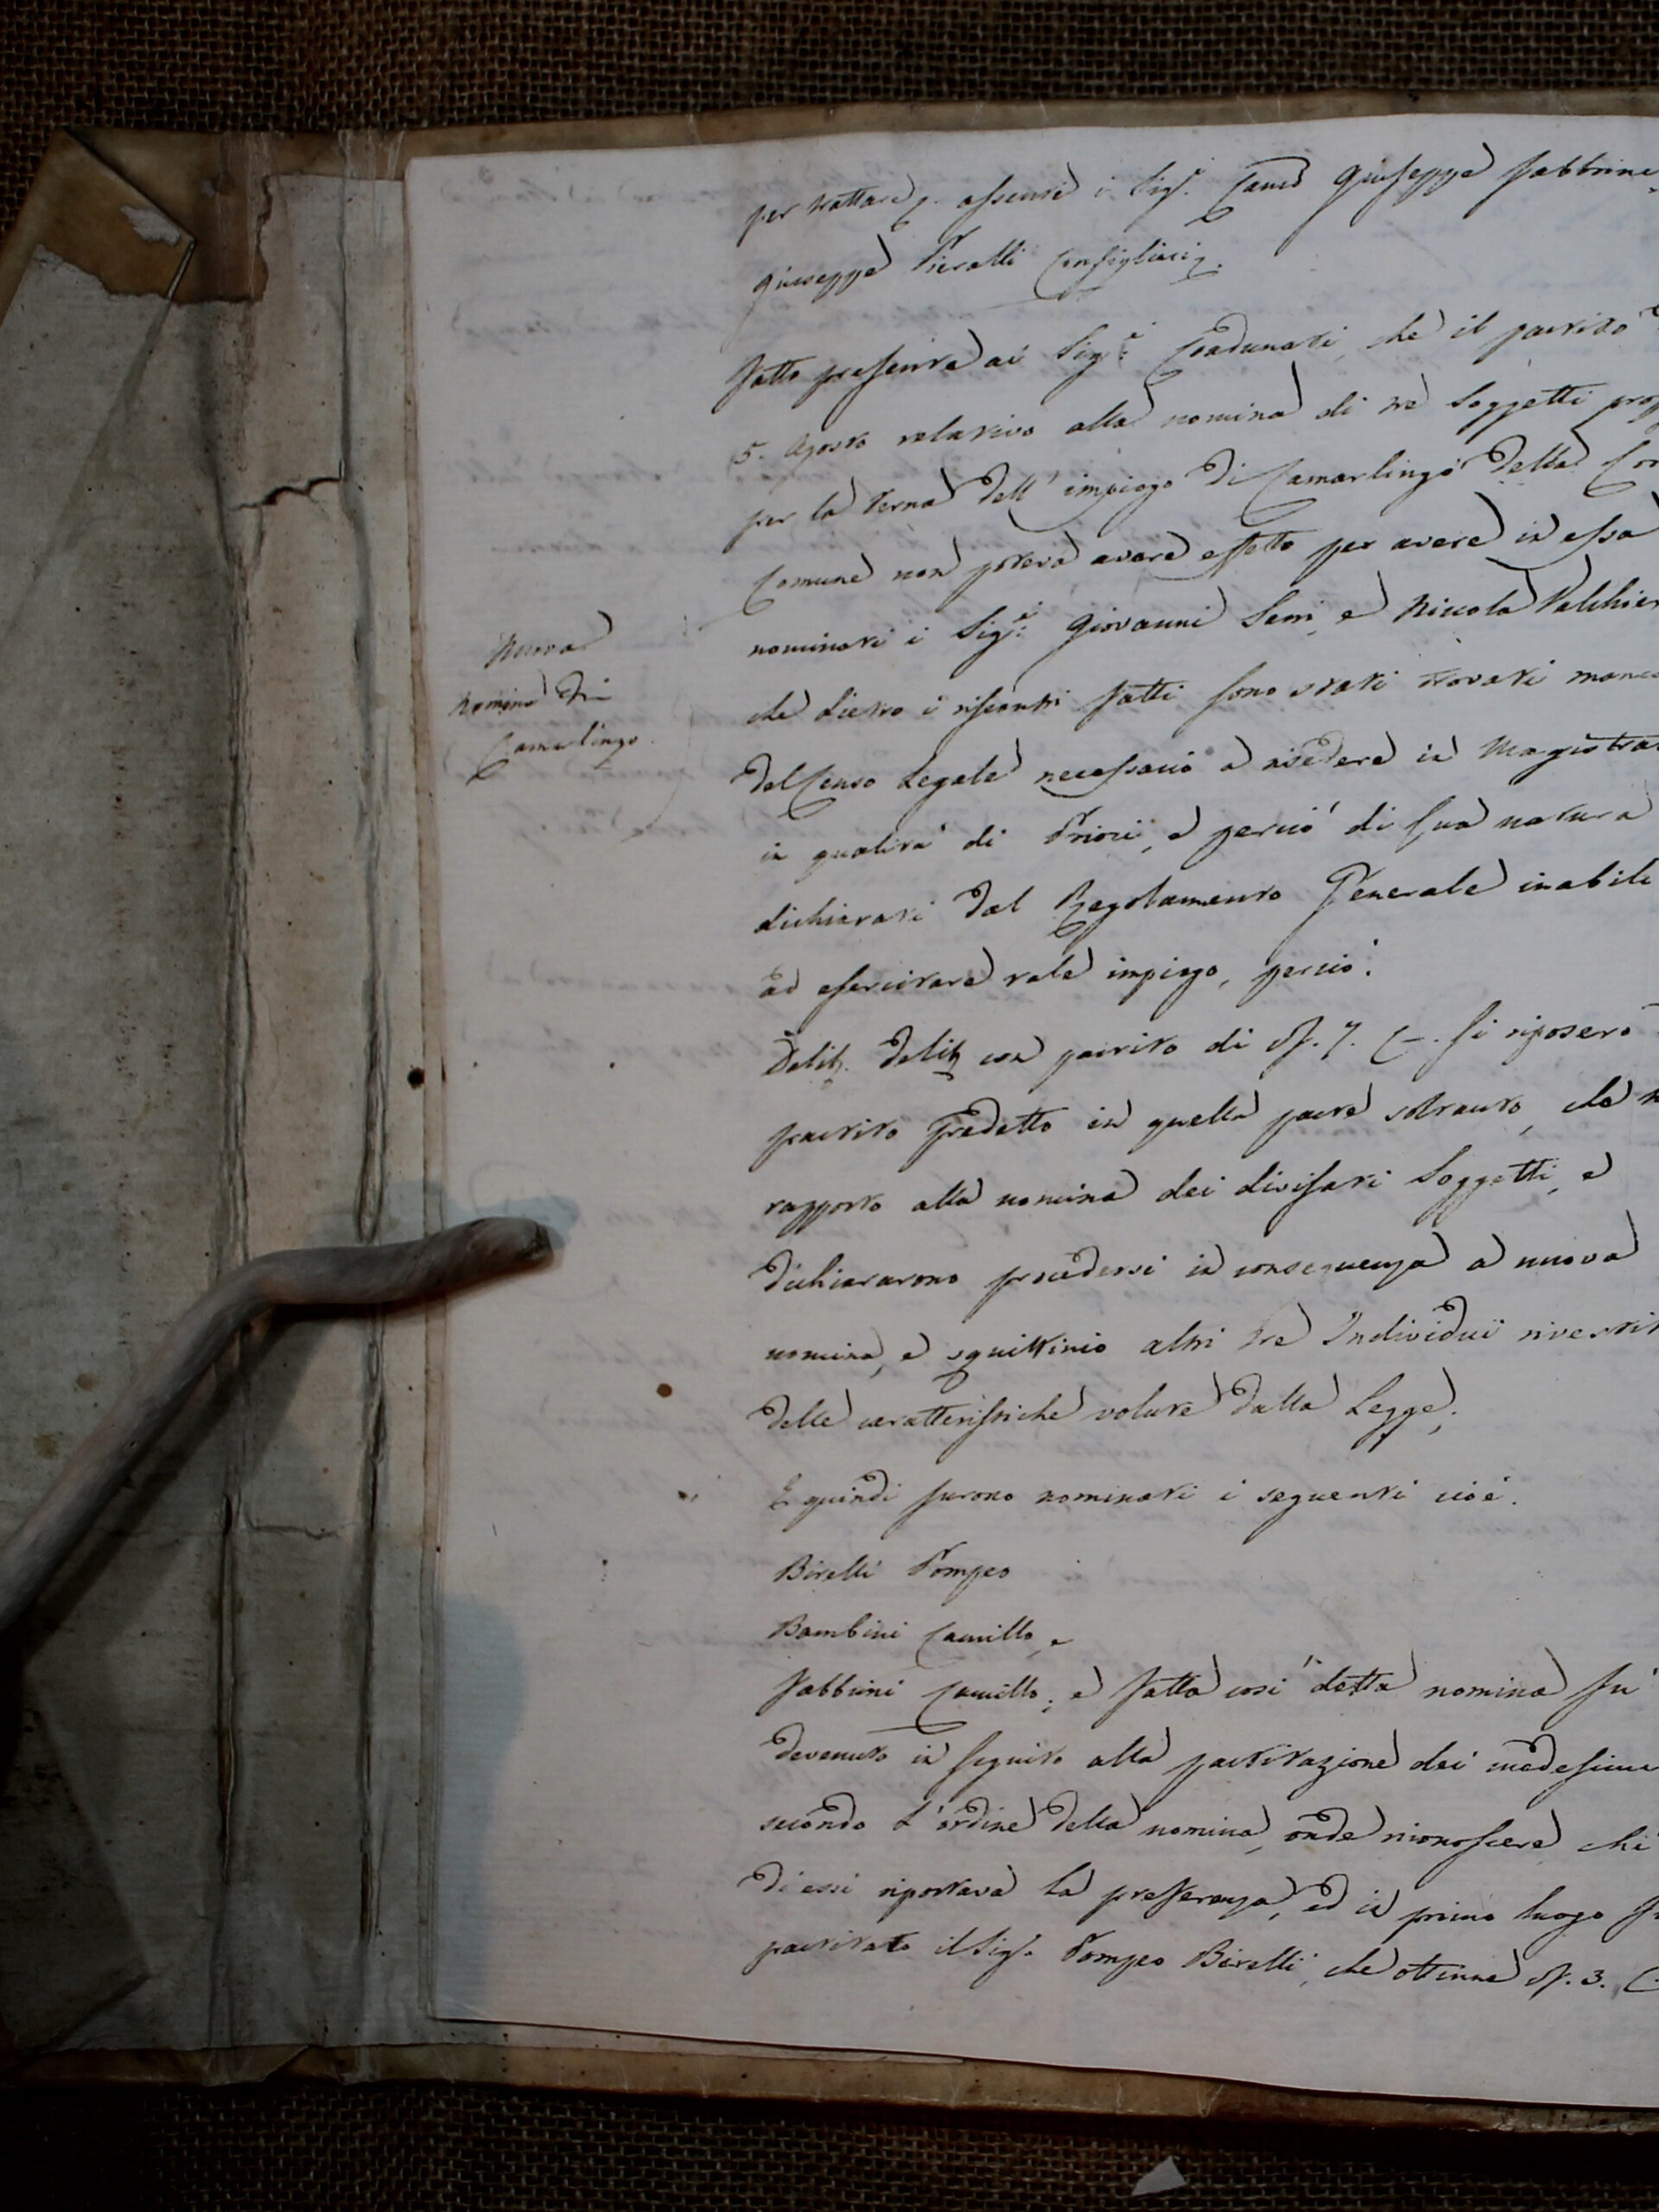 per trattare q. assenti i Sig.i Canco Giuseppe Fabbrini
Giuseppe Pieralli Consiglieri.
Fatto presente ai Sig.i Coadunati, che il partito
5. Agosto relativo alla nomina di tre Soggetti prop
per la terna dell' impiego di Camarlingo della Com
Comune non poteva avere effetto per avere in essa
nominati i Sig.i Giovanni Seri, e Niccola Valchier
che dietro i riscontri fatti sono stati trovati manca
del Censo Legale necessario a risedere in Magistrat
in qualità di Priori, e perciò di sua natura
dichiarati dal Regolamento Generale inabili
ad esercitare tale impiego, perciò:
Delib. Delib. con partito di N. 7. C–. si riposero
partito predetto in quella parte soltanto, che
rapporto alla nomina dei divisati Soggetti, e
dichiararono procedersi in conseguenza a nuova
nomina, e squittinio altri tre Individui rivestit
delle caratteristiche volute dalla Legge;
E quindi furono nominati i seguenti cioè.
Birelli Pompeo
Bambini Camillo, e
Fabbrini Camillo; e fatta così detta nomina fù
devenuto in seguito alla partitazione dei medesimi
secondo l'ordine della nomina, onde riconoscere chi
di essi riportava la preferenza, ed in primo luogo fu
partitato il Sig.r Pompeo Birelli, che ottenne N. 3. C
Nuova
Nomina di
Camarlingo.